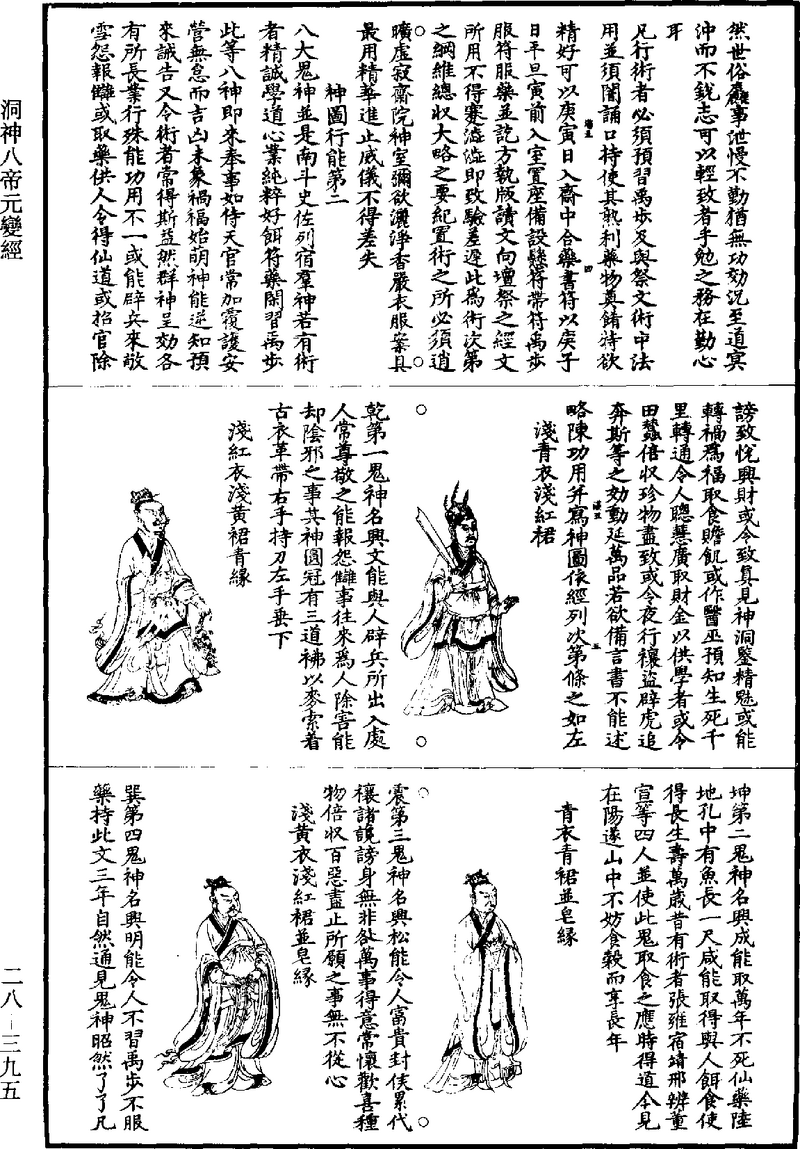 然世俗麤事泄慢不勤猶無功効況至道冥
沖而不銳志可以輕致者乎勉之務在勤心
耳
凡行術者必須預習禹步及與祭文術中法
用並須闇誦口持使其熟利藥物奠餚特欲
精好可以庚寅日入齋中合藥書符以庚子
日平旦寅前入室置座備設懸符帶符禹步
服符服藥並訖方執版讀文向壇祭之經文
所用不得蹇澁澁即致驗差遲此為術次第
之綱維總收大略之要紀置術之所必須逍
曠虛寂齋院神室彌欲灑淨香嚴衣服案具
最用精華進止威儀不得差失
神圖行能第二
八大鬼神並是南斗史佐列宿羣神若有術
者精誠學道心業純粹好餌符藥閑習禹步
此等八神即來奉事如侍天官常加覆護安
營無怠而吉凶未象禍福始萌神能逆知預
來誡告又令術者常得斯益然群神呈効各
有所長業行殊能功用不一或能辟兵來敵
雪怨報讎或取藥供人令得仙道或招官除
謗致悅興財或令致具見神洞鑒精魅或能
轉禍為福取食贍飢或作醫巫預知生死千
里轉通令人聰慧廣取財金以供學者或令
田蠶倍收珍物盡致或令夜行禳盜辟虎追
奔斯等之効動延萬品若欲備言書不能述
略陳功用并寫神圖依經列次第條之如左
淺青衣淺紅裙
乾第一鬼神名興文能與人辟兵所出入處
人常尊敬之能報怨讎事往來為人除害能
却陰邪之事其神圓冠有三道梻以麥索着
古衣革帶右手持刀左手垂下
淺紅衣淺黃裙青緣
坤第二鬼神名興成能取萬年不死仙藥陸
地孔中有魚長一尺咸能取得與人餌食使
得長生壽萬歲昔有術者張雍宿靖邢辨董
宣等四人並使此鬼取食之應時得道今見
在陽遂山中不妨食穀而享長年
青衣青裙並皂緣
震第三鬼神名興松能令人富貴封侯累代
禳諸讒謗身無非咎萬事得意常懷歡喜種
物倍收百惡盡止所願之事無不從心
淺黃衣淺紅裙並皂緣
巽第四鬼神名興明能令人不習禹步不服
藥持此文三年自然通見鬼神昭然了了凡
洞神八帝元變經
二八－三九五